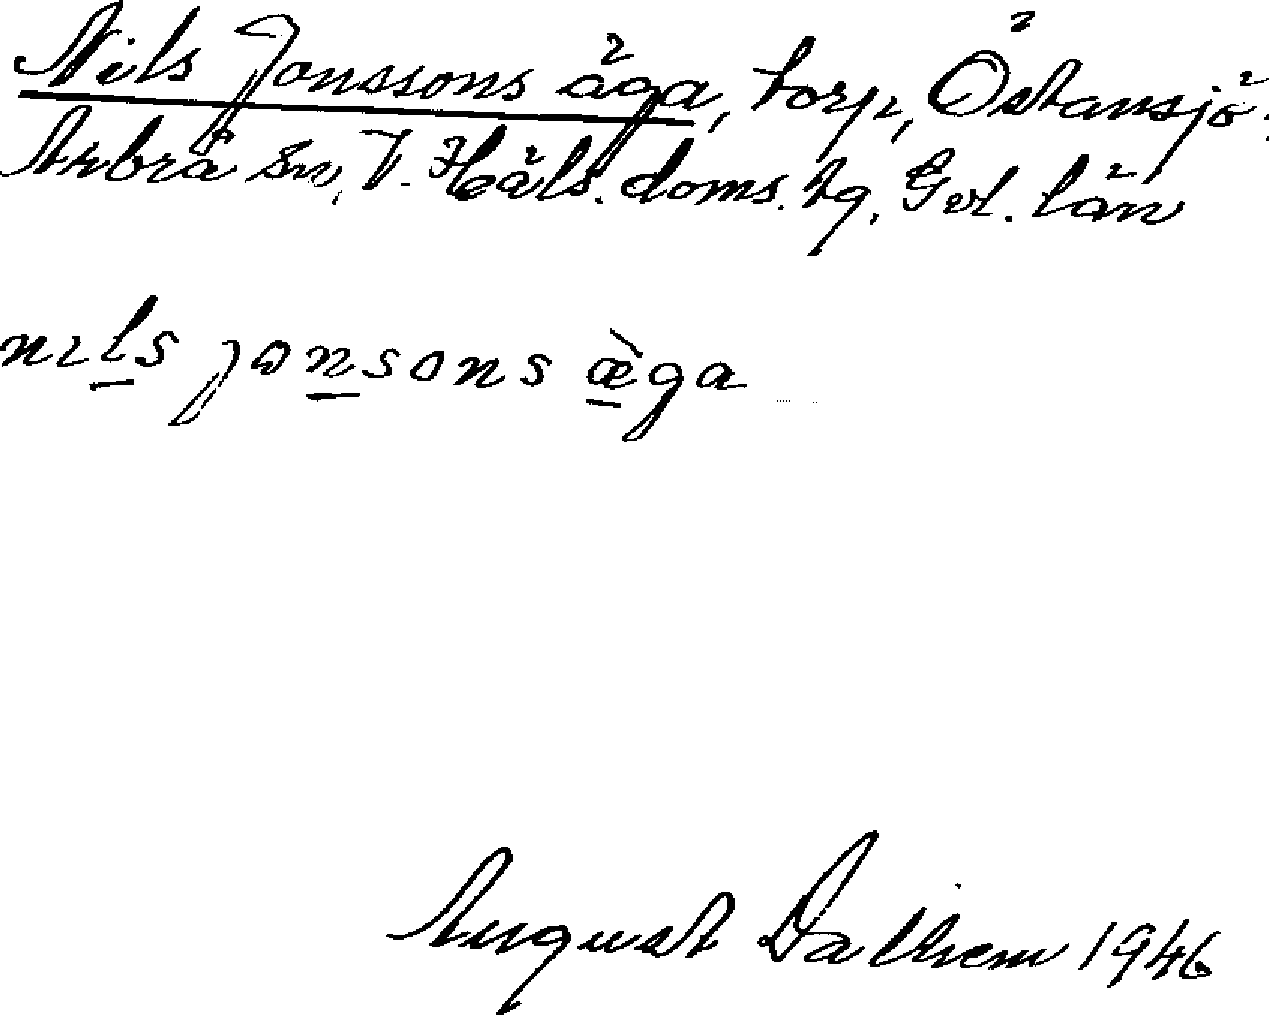 Nils Jonssons äga, torp, Östansjö,
Arbrå sn, V. Häls. doms. tg, Gvl. län
nils jonsons æ̀ga
August Dalhem 1946